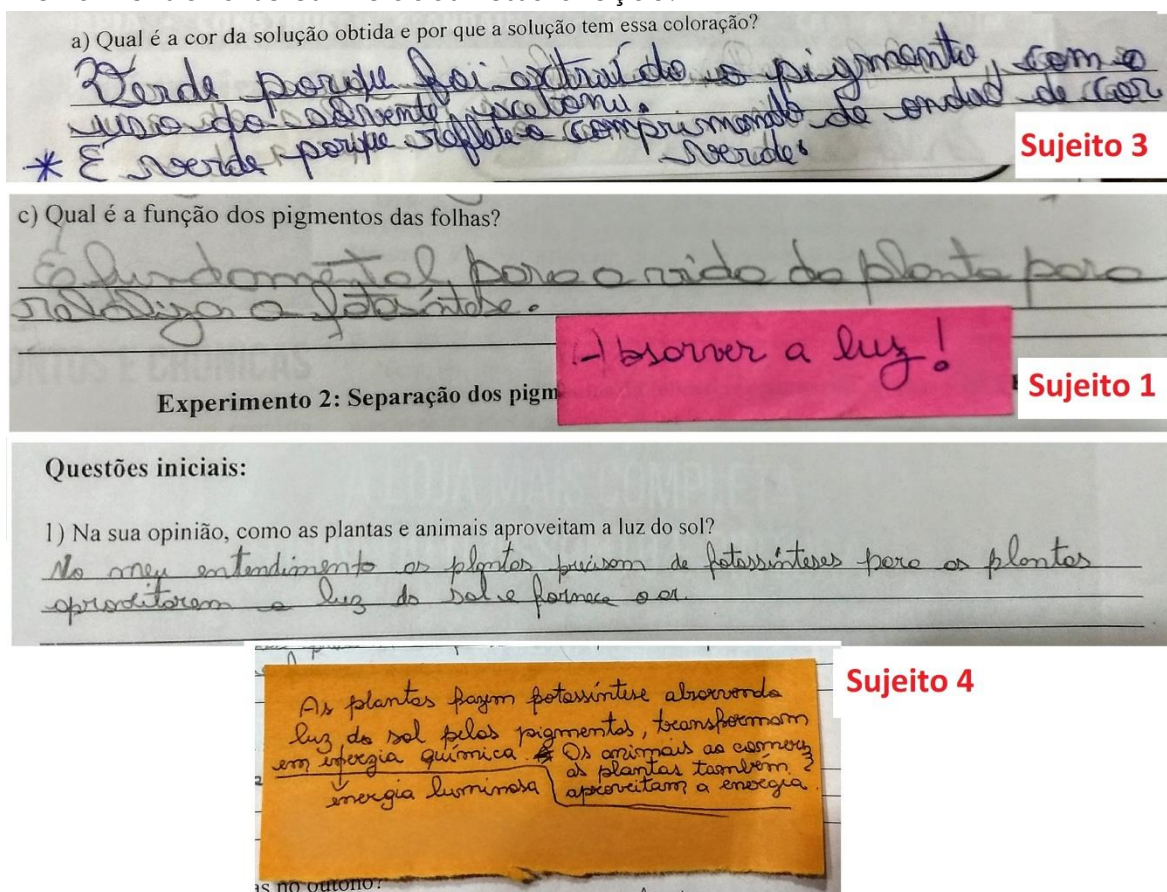 a) Qual é a cor da solução obtida e por que a solução tem essa coloração?
Verde porque foi extraído o pigmento, com o
uso do solvente acetona.
* É verde porque reflete o comprimento de onda de cor
verde.
Sujeito 3
c) Qual é a função dos pigmentos das folhas?
É fundamental para a vida da planta para
a fotosíntese.
Absorver a luz!
Experimento 2: Separação dos pigm
Sujeito 1
Questões iniciais:
1) Na sua opinião, como as plantas e animais aproveitam a luz do sol?
No meu entendimento as plantas precisam de fotossínteses para as plantas
a luz do sol e fornece o ar.
Sujeito 4
As plantas fazem fotossíntese absorvendo
luz do sol pelos pigmentos, transformam
em energia química. Os animais ao comer
as plantas também
energia luminosa aproveitam a energia.
as no outono?